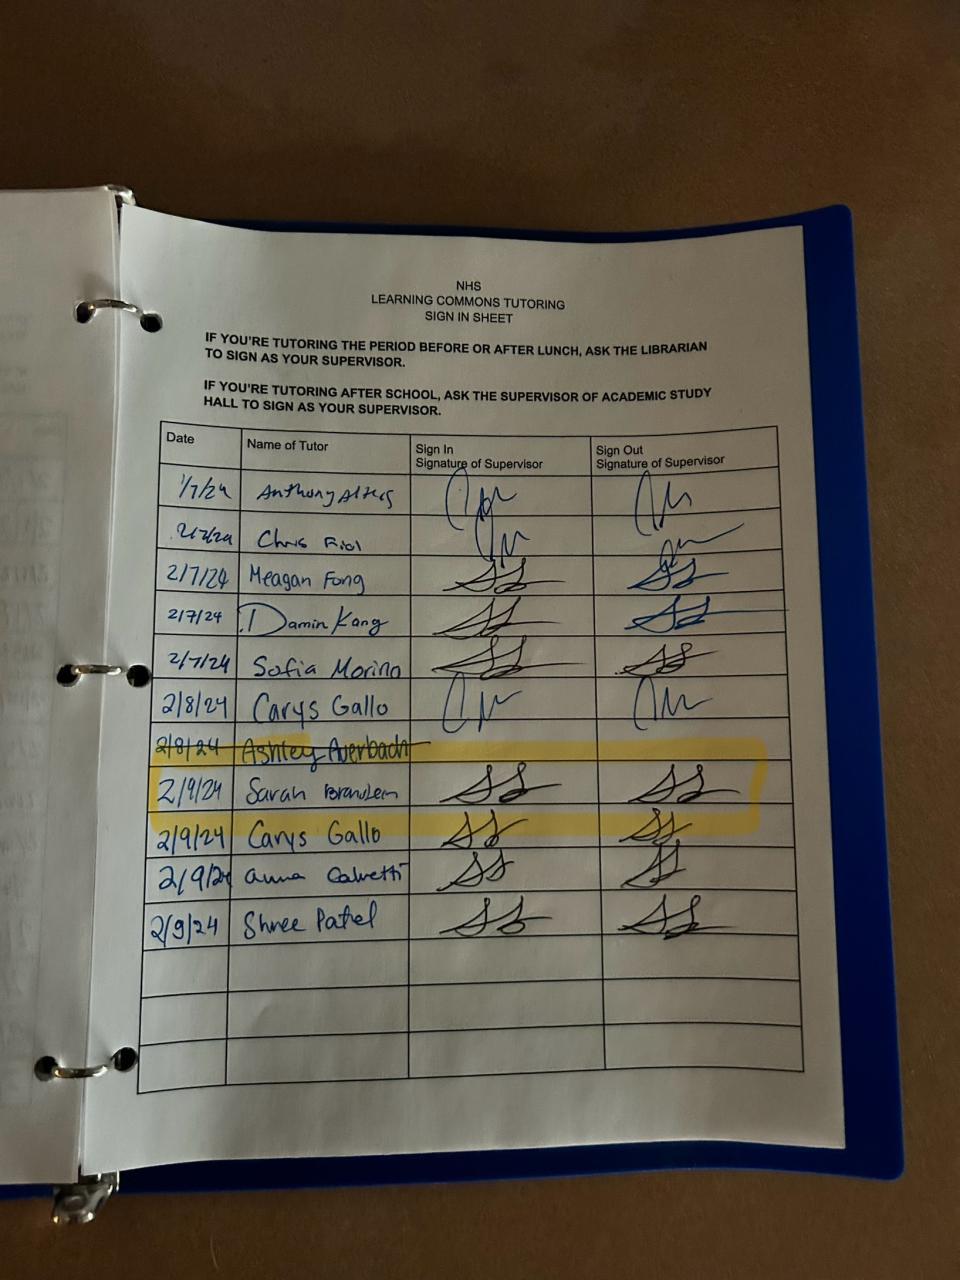 NHS
LEARNING COMMONS TUTORING
SIGN IN SHEET
IF YOU'RE TUTORING THE PERIOD BEFORE OR AFTER LUNCH, ASK THE LIBRARIAN
TO SIGN AS YOUR SUPERVISOR.
IF YOU'RE TUTORING AFTER SCHOOL, ASK THE SUPERVISOR OF ACADEMIC STUDY
HALL TO SIGN AS YOUR SUPERVISOR.
Date Name of Tutor Sign In Signature of Supervisor Sign Out Signature of Supervisor
1/7/24 Anthony
2/7/24 Chris
2/7/24 Meagan Fong
2/7/24 Damin Kang
2/7/24 Sofia Morino
2/8/24 Carys Gallo
2/8/24 Ashley Averbach
2/9/24 Sarah
2/9/24 Carys Gallo
2/9/24 anna Calvetti
2/9/24 Shree Patel